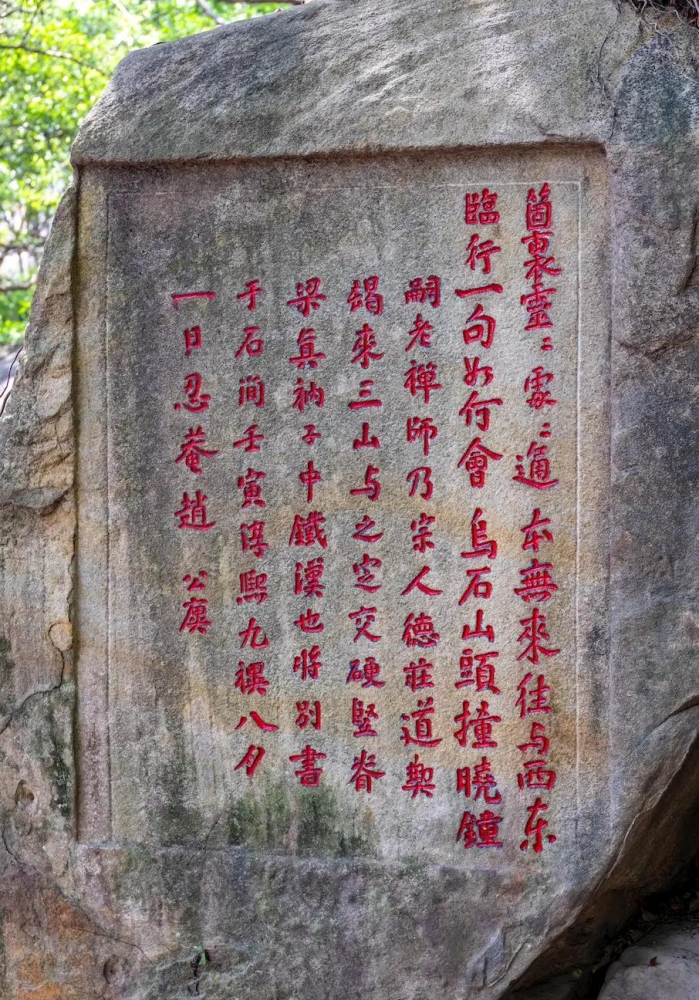 箇裏靈〻處〻通本無來往与西东
臨行一句如何會烏石山頭撞曉鐘
嗣老禪師乃宗人德莊道契
朅來三山与之定交硬竪脊
梁真衲子中鐵漢也將别書
于石澗壬寅淳熙九禩八夕
一日忍菴趙公廙